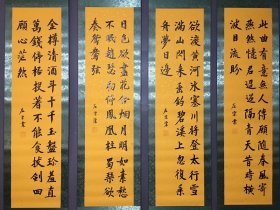 此曲有意無人傳願隨春風寄
燕然憶君迢迢隔青天昔時橫
波目流
欲渡黃河冰塞川將登太行雪
滿山閑來垂釣碧溪上忽復乘
舟夢日邊
日色欲盡花含煙月明如素愁
不眠趙瑟初停鳳凰柱蜀琴欲
奏鴛鴦弦
金樽清酒斗十千玉盤珍羞直
萬錢停杯投箸不能食拔劍四
顧心茫然